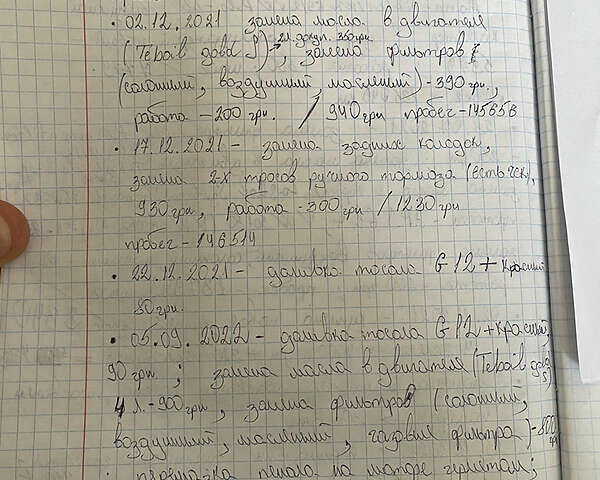 • 02.12.2021 замена масла в двигателе
2л. докуп. 350грн.
(Tepaib gobd 5), замена фильтров
(салонний, воздушний, маслений) - 390 грн.,
работа - 200 грн. / 940 грн пробег - 145658
• 17.12.2021 - замена задних колодок,
замена 2-х тросов ручного тормоза (есть чек),
930 грн, работа - 300 грн / 1230 грн
пробег - 146514
• 22.12.2021 - доливка тосола G12+ красний
80 грн.
• 05.09.2022 - доливка тосола G12+ красний,
90 грн.; замена масла в двигателе (Tepaib
4 л. - 900 грн, замена фильтров (салонний,
воздушний, маслений, газовие фильтра) - 800
грн
• на моторе герметом;